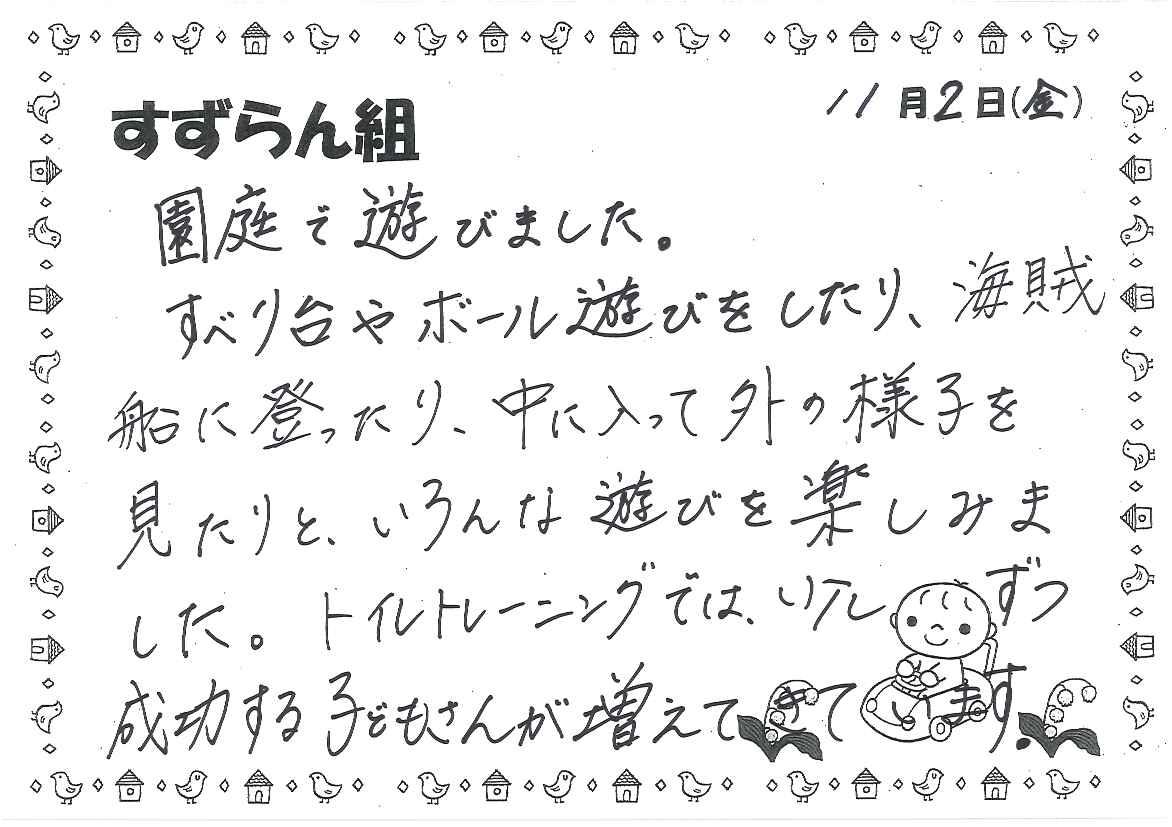 11月2日(金)
すずらん組
園庭で遊びました。
すべり台やボール遊びをしたり、海賊
船に登ったり、中に入って外の様子を
見たりと、いろんな遊びを楽しみま
した。トイレトレーニングでは、少しずつ
成功する子どもさんが増えてきています.